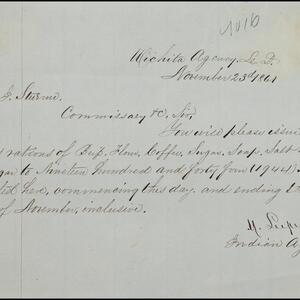 4016
Wichita Agency, L. D.
November 23d 1861
J. Sturm.
Commissary &c, Sir,
You will please issue
rations of Beef, Flour, Coffee, Sugar, Soap, Salt
to Nineteen hundred and forty four (1944)
here, commencing this day, and ending
of November, inclusive.
M. Leeper
Indian Ag